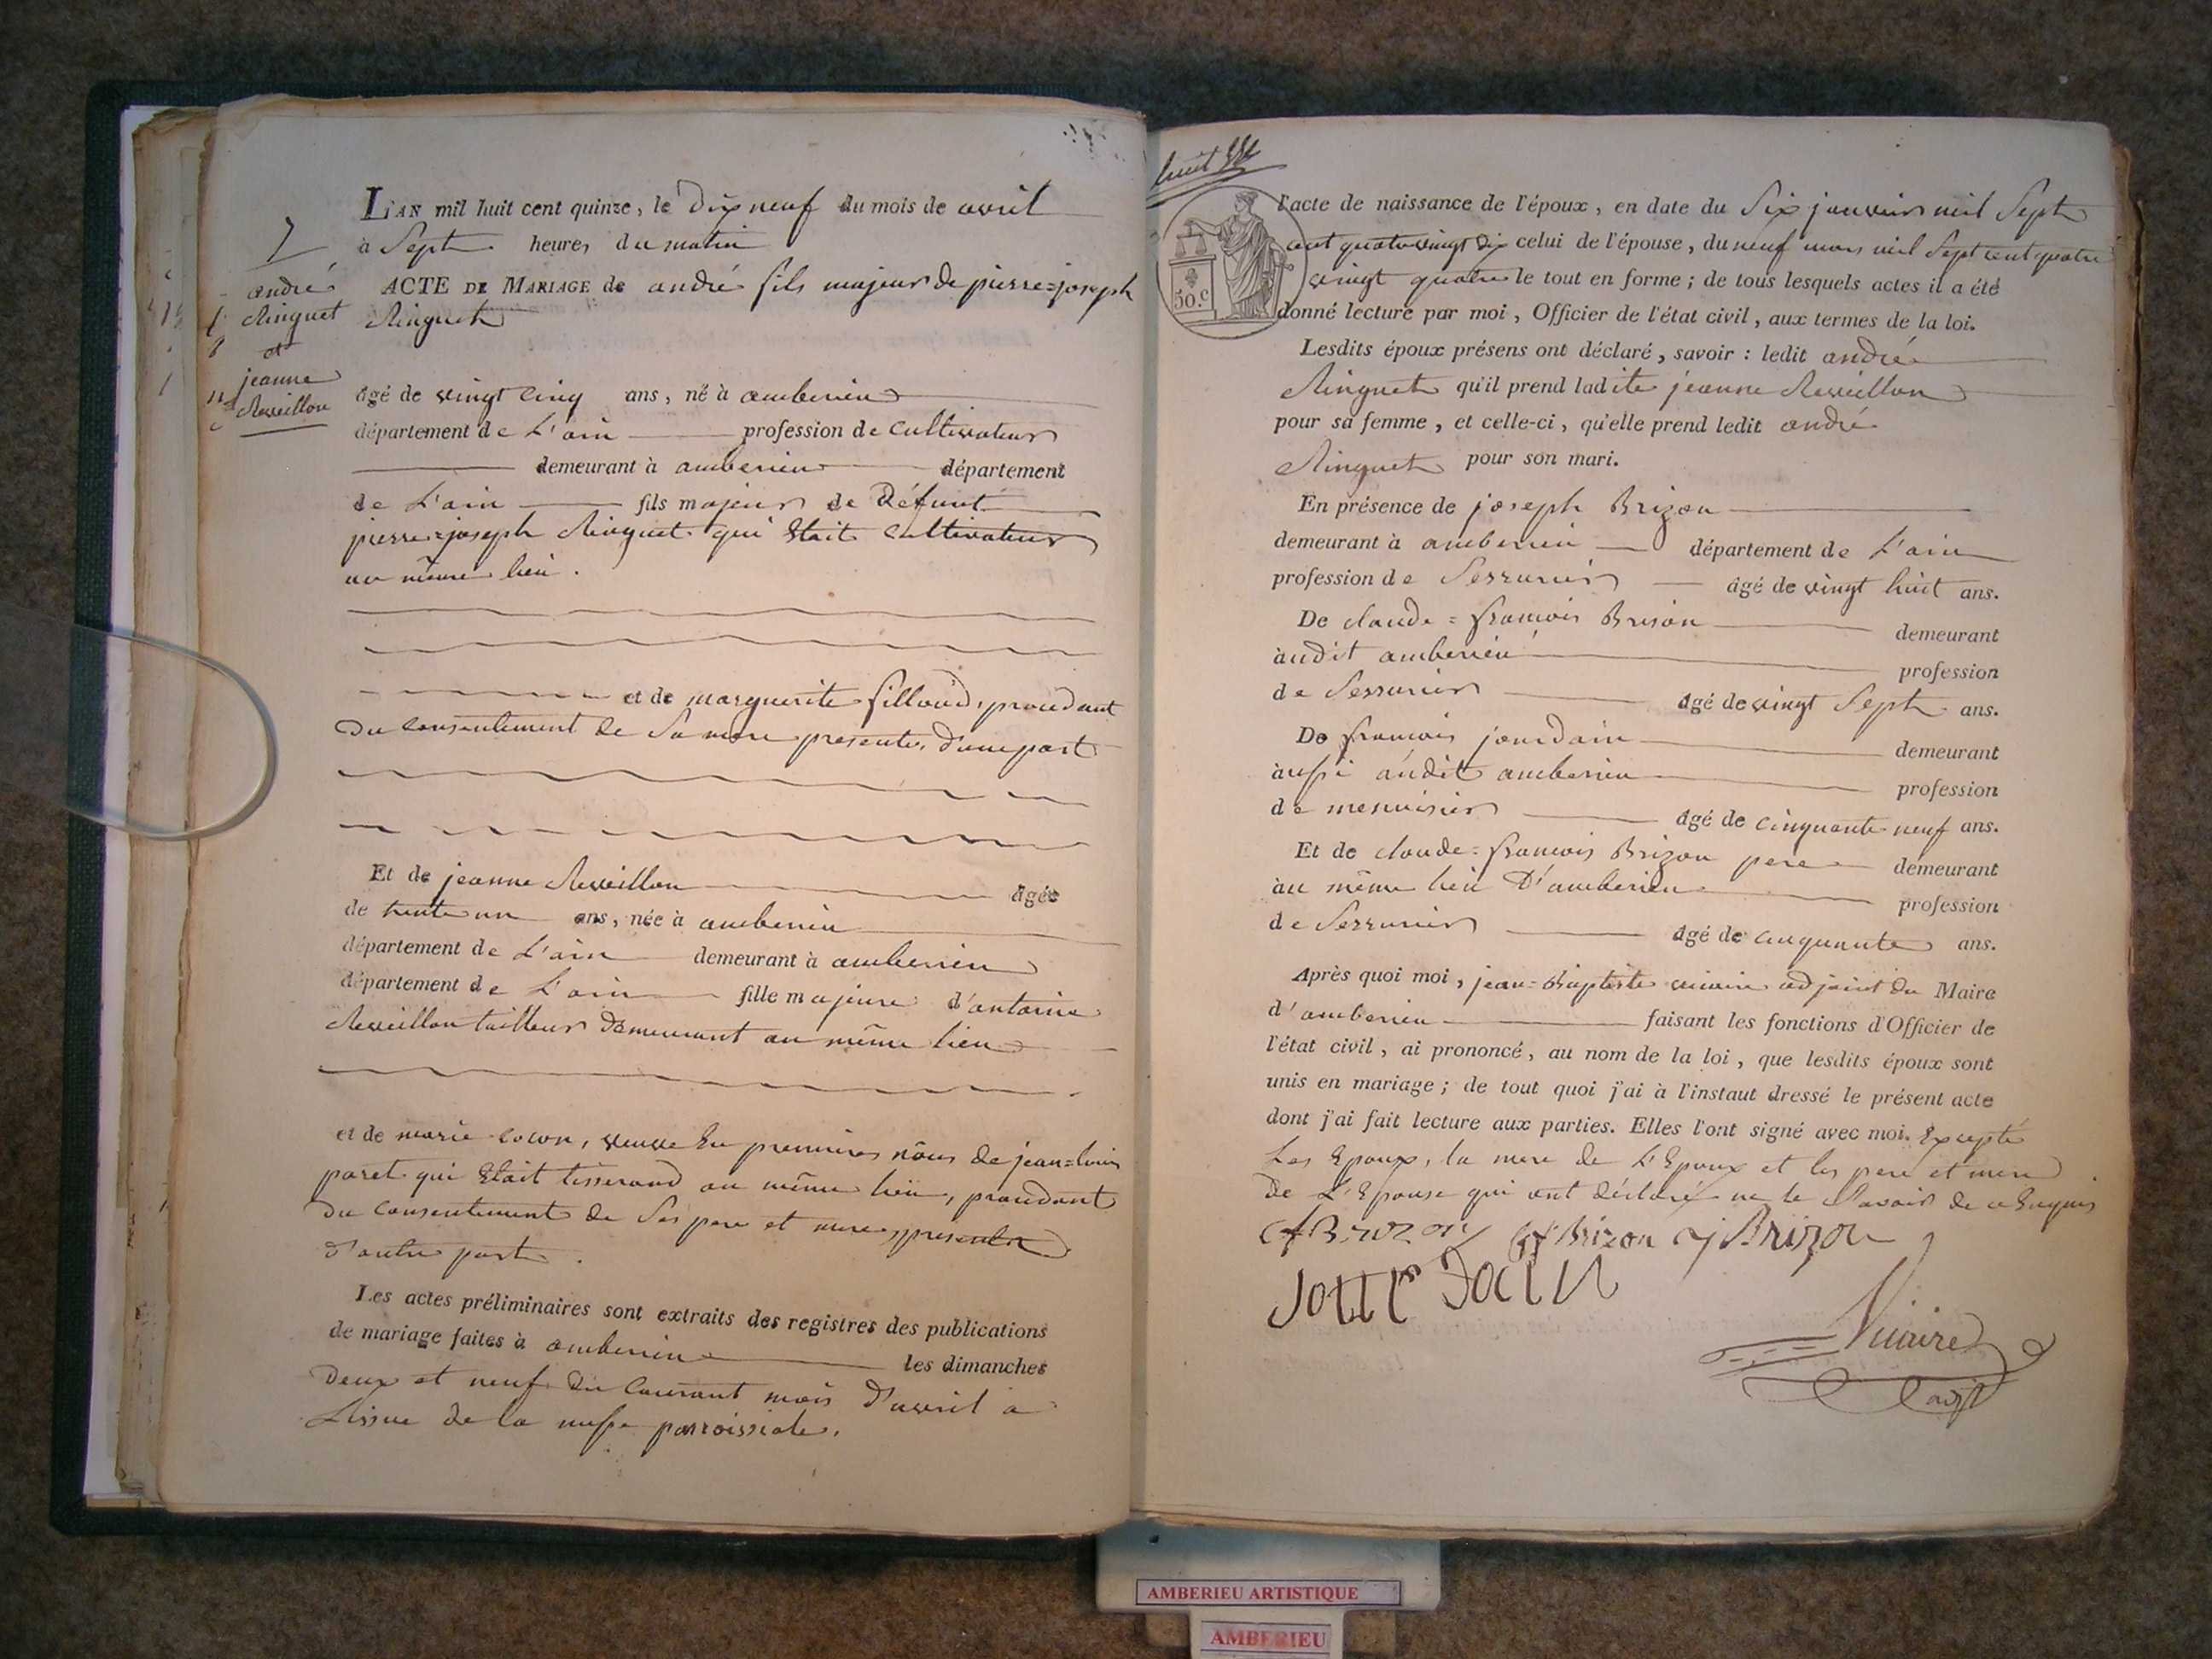 L'AN mil huit cent quinze, le dix neuf du mois de avril
à Sept heures du matin
7
andré
Ringuet
et
jeanne
Reveillon
ACTE DE MARIAGE de andré fils majeur de pierre=joseph
Ringuet
âgé de vingt cinq ans, né à amberieu
département de L'ain profession de Cultivateur
demeurant à amberieu département
de L'ain fils majeur de Défunt
pierre=joseph Ringuet qui Etait Cultivateur
au même lieu.
et de marguerite filloud, procedant
du consentement de Sa mere presente, d'une part
Et de jeanne Reveillon âgée
de trente un ans, née à amberieu
département de L'ain demeurant à amberieu
département de L'ain fille majeure d'antoine
Reveillon tailleur Demeurant au même lieu
et de marie cocon, veuve En premieres nôces de jean=louis
paret qui Etait tisserand au même lieu, procedant
du Consentement de Ses pere et mere, presents
d'autre part.
Les actes préliminaires sont extraits des registres des publications
de mariage faites à amberieu les dimanches
Deux et neuf du Courant mois d'avril a
L'issue de la messe parroissiale.
huit
50. C
l'acte de naissance de l'époux, en date du Six janvier mil Sept
cent quatrevingt dix celui de l'épouse, du neuf mars mil Sept cent quatre
vingt quatre le tout en forme ; de tous lesquels actes il a été
donné lecture par moi, Officier de l'état civil, aux termes de la loi.
Lesdits époux présens ont déclaré, savoir : ledit andré
Ringuet qu'il prend ladite jeanne Reveillon
pour sa femme, et celle-ci, qu'elle prend ledit andré
Ringuet pour son mari.
En présence de joseph Brizon
demeurant à amberieu département de L'ain
profession de Serrurier âgé de vingt huit ans.
De claude=francois Brison demeurant
audit amberieu profession
de Serrurier âgé de vingt Sept ans.
De francois jourdain demeurant
aussi audit amberieu profession
de menuisier âgé de cinquante neuf ans.
Et de claude=francois Brizon pere demeurant
au même lieu D'amberieu profession
de Serrurier âgé de cinquante ans.
Après quoi moi, jean=Baptiste vicaire adjoint du Maire
d'amberieu faisant les fonctions d'Officier de
l'état civil, ai prononcé, au nom de la loi, que lesdits époux sont
unis en mariage ; de tout quoi j'ai à l'instaut dressé le présent acte
dont j'ai fait lecture aux parties. Elles l'ont signé avec moi. Excepté
Les Epoux, la mere de L'Epoux et les pere et mere
De L'Epouse qui ont déclaré ne le Savoir de ce Enquis
Brizon j Brizon
Jour Dain
Vicaire
adjt
AMBERIEU ARTISTIQUE
AMBERIEU